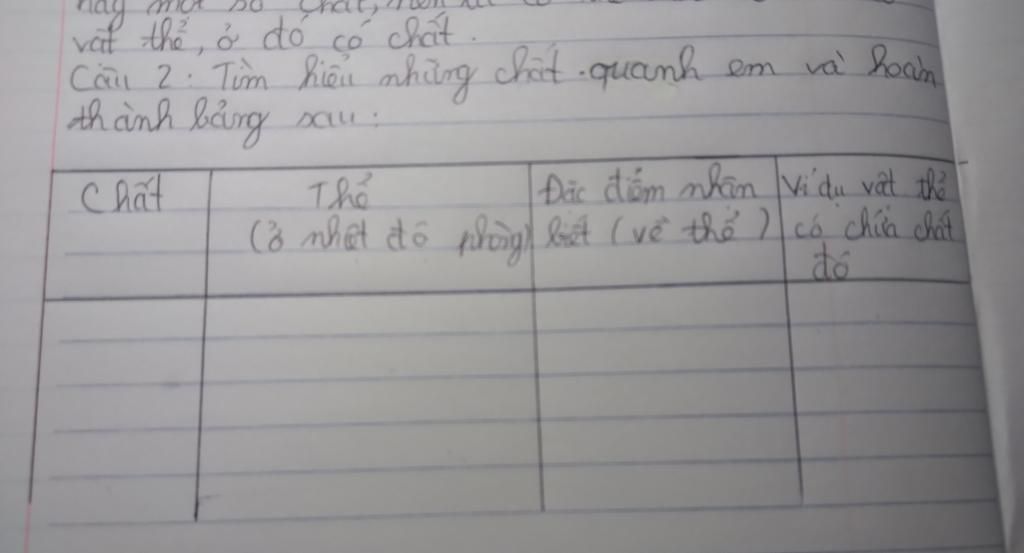 này một số chất,
vật thể, ở đó có chất.
Câu 2: Tìm hiểu những chất quanh em và hoàn
thành bảng sau:
Chất
Thể
(ở nhiệt độ phòng)
Đặc điểm nhận
biết (về thể)
Ví dụ vật thể
có chứa chất
đó